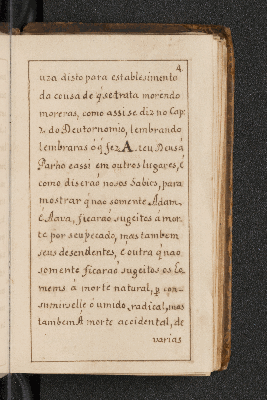 4
uza disto para establesimento
da cousa de q̃ setrata morendo
moreras, como assi se diz no Cap:
7. do Deutornomio, lembrando
lembraras ó q̃ fez A. teu Deus á
Parhó e assi em outros lugares, é
como diserão nosos Sabios, para
mostrar q̃ não somente Adam
é Hava, ficarão sugeitos á mor-
te por seu pecado, mas tambem
seus desendentes, é outra q̃ não
somente ficarão sugeitos os ho
mems á morte natural, p con-
sumirselle ó umido radical, mas
tambem Á morte accidental, de
varias